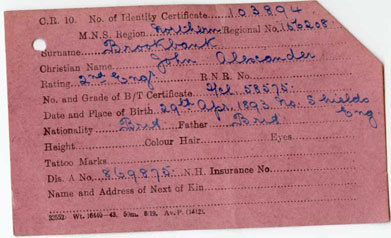 C.R. 10. No. of Identity Certificate 103894
M.N.S. Region Northern Regional No. 156208
Surname Brookbank
Christian Name John Alexander
Rating 2nd Eng. R.N.R. No.
No. and Grade of B/T Certificate 2/cl 58575
Date and Place of Birth 29th Apr. 1893 No. Shields Eng
Nationality Brit Father Brit
Height Colour Hair Eyes
Tattoo Marks
Dis. A No. 869875 N.H. Insurance No.
Name and Address of Next of Kin
Wt. 16440—43. 50m. 8/19. Av.P.